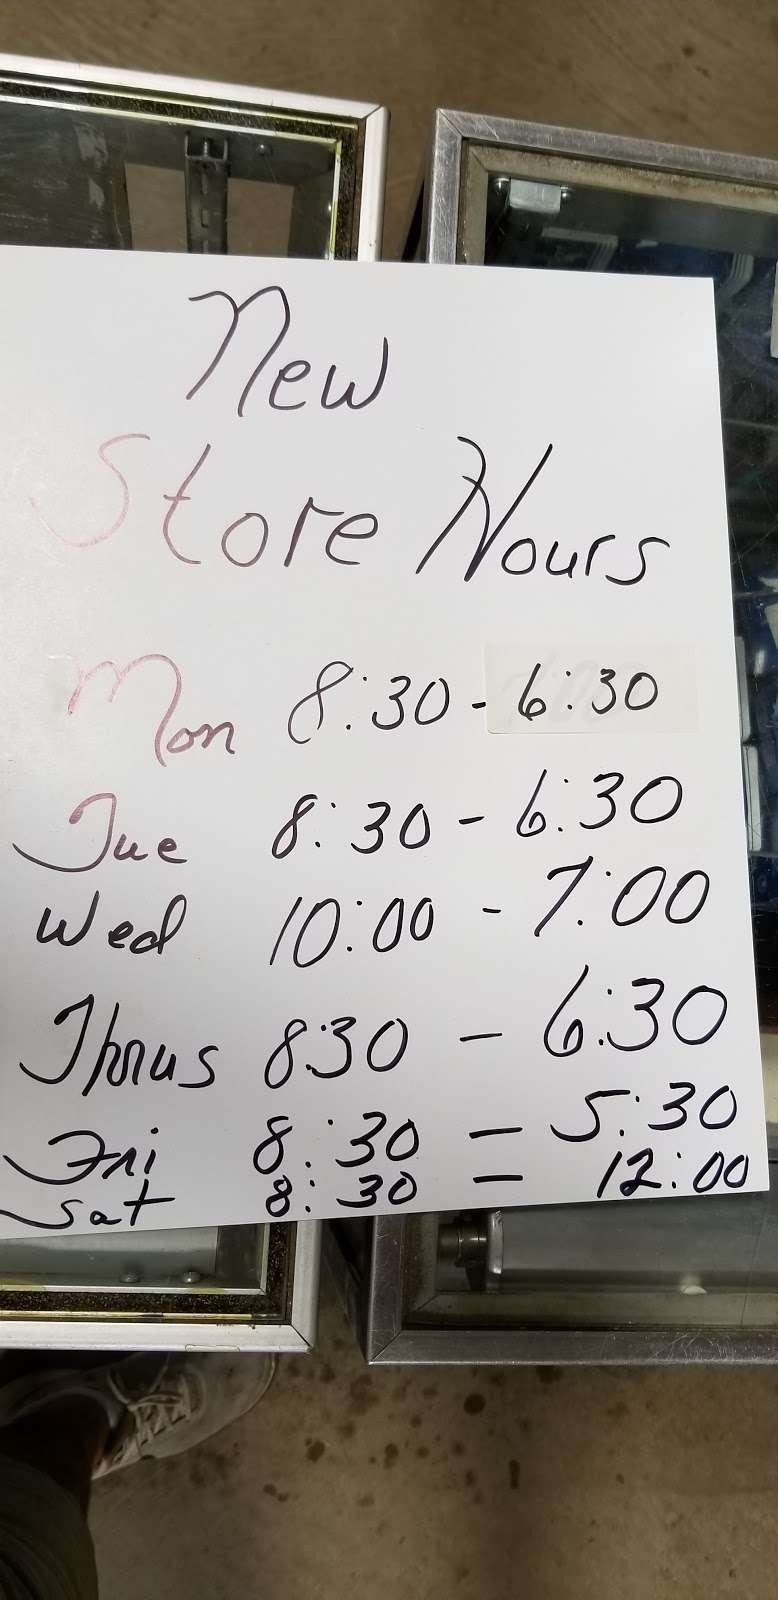 New
Store Hours
Mon 8:30 - 6:30
Tue 8:30 - 6:30
Wed 10:00 - 7:00
Thrus 8:30 - 6:30
Fri 8:30 - 5:30
Sat 8:30 - 12:00